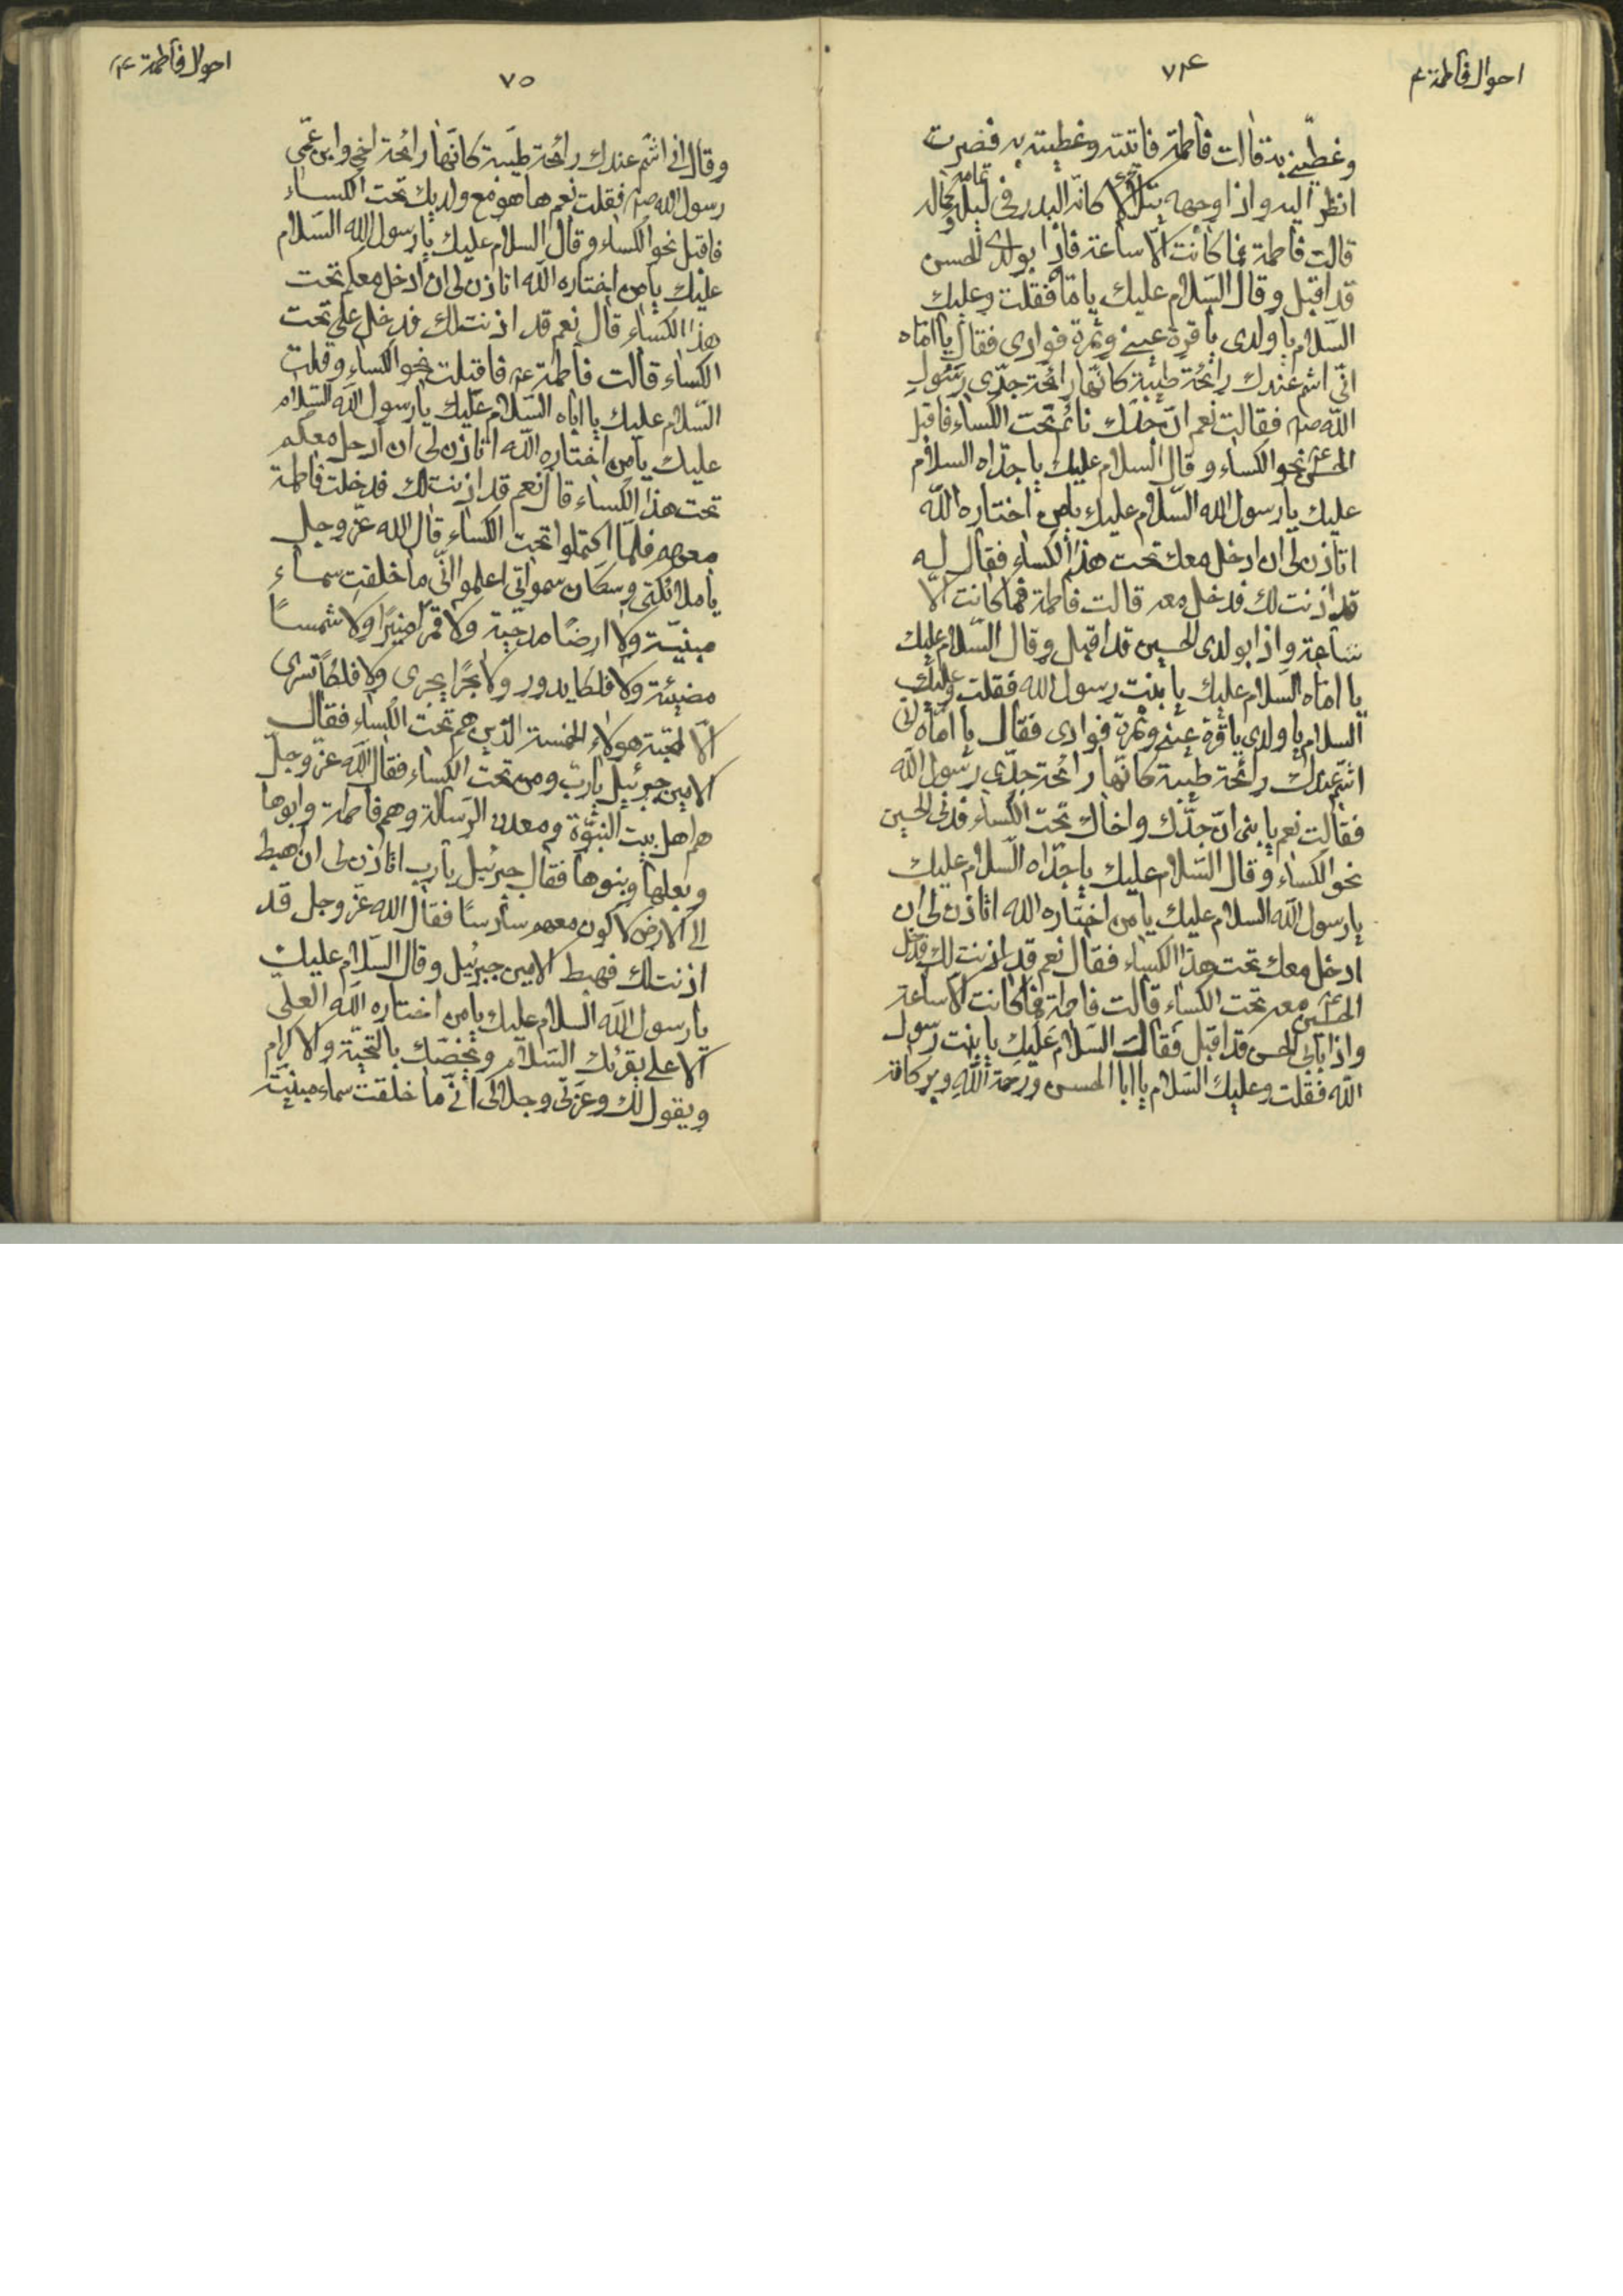 احوال فاطمة ع
٧٤
وغطيني به قالت فاطمة فاتيته وغطيته به فصرت
انظر اليه واذا وجهه يتلألأ كانه البدر في ليلة تمامه وكماله
قالت فاطمة فما كانت الّا ساعة فاذا بولدى الحسن
قد اقبل وقال السّلام عليك يا امّاه فقلت وعليك
السّلام يا ولدى يا قرة عينى وثمرة فوادى فقال يا اماه
انّى اشم عندك رائحة طيّبة كانّها رائحة جدّى رسول
اللّه ص فقالت نعم انّ جدّك نائم تحت الكساء فاقبل
الحسن ع نحو الكساء وقال السلام عليك يا جدّاه السلام
عليك يا رسول الله السّلام عليك يا من اختاره اللّه
اتاذن لى ان ادخل معك تحت هذا الكساء فقال له
قد اذنت لك فدخل معه قالت فاطمة فما كانت الّا
ساعة واذا بولدى الحسين قد اقبل وقال السّلام عليك
يا اماه السّلام عليك يا بنت رسول الله فقلت وعليك
السلام يا ولدى يا قرة عينى وثمرة فوادى فقال يا امّاه انى
اشمّ عندك رائحة طيبة كانّها رائحة جدّى رسول اللّه
فقالت نعم يا بنى انّ جدّك واخاك تحت الكساء فدنى الحسين
نحو الكساء وقال السّلام عليك يا جدّاه السّلام عليك
يا رسول اللّه السلام عليك يا من اختاره الله اتاذن لى ان
ادخل معك تحت هذا الكساء فقال نعم قد اذنت لك فدخل
الحسين ع معه تحت الكساء قالت فاطمة فما كانت الّا ساعة
واذا بابى الحسن قد اقبل فقالت السّلام عليك يا بنت رسول
اللّه فقلت وعليك السّلام يا ابا الحسن ورحمة اللّه وبركاته
احوال فاطمة ع
٧٥
وقال انى اشم عندك رائحة طيّبة كانّها رائحة اخى وابن عمّى
رسول الله ص فقلت نعم ها هو مع ولديك تحت الكساء
فاقبل نحو الكساء وقال السلام عليك يا رسول الله السّلام
عليك يا من اختاره اللّه اتاذن لى ان ادخل معكم تحت
هذا الكساء قال نعم قد اذنت لك فدخل على تحت
الكساء قالت فاطمة ع فاقبلت نحو الكساء وقلت
السّلام عليك يا اباه السّلام عليك يا رسول اللّه السّلام
عليك يا من اختاره اللّه اتاذن لى ان ادخل معكم
تحت هذا الكساء قال نعم قد اذنت لك فدخلت فاطمة
معهم فلمّا اكتملوا تحت الكساء قال الله عزّ وجل
يا ملائكتى وسكّان سمواتى اعلموا انّى ما خلقت سماء
مبنيّة ولا ارضًا مدحيّة ولا قمرًا منيرًا ولا شمسًا
مضيئة ولا فلكا يدور ولا بحرًا يجرى ولا فلكًا تسرى
الّا لمحبّة هولاء الخمسة الّذين هم تحت الكساء فقال
الامين جبرئيل يا ربّ ومن تحت الكساء فقال اللّه عزّ وجلّ
هم اهل بيت النبوّة ومعدن الرّسالة وهم فاطمة وابوها
وبعلها وبنوها فقال جبرئيل يا رب اتاذن لى ان اهبط
الى الارض لاكون معهم سادسًا فقال الله عزّ وجل قد
اذنت لك فهبط الامين جبرئيل وقال السّلام عليك
يا رسول اللّه السّلام عليك يا من اختاره اللّه العلىّ
الاعلى يقرئك السّلام ويخصّك بالتحيّة والاكرام
ويقول لك وعزّتى وجلالى انّى ما خلقت سماء مبنيّة